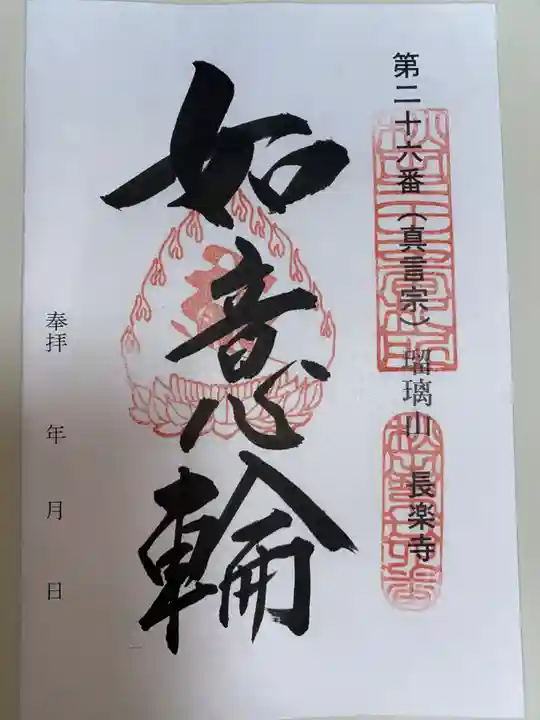 第二十六番(真言宗)瑠璃山 長楽寺
如意輪
奉拝 年 月 日